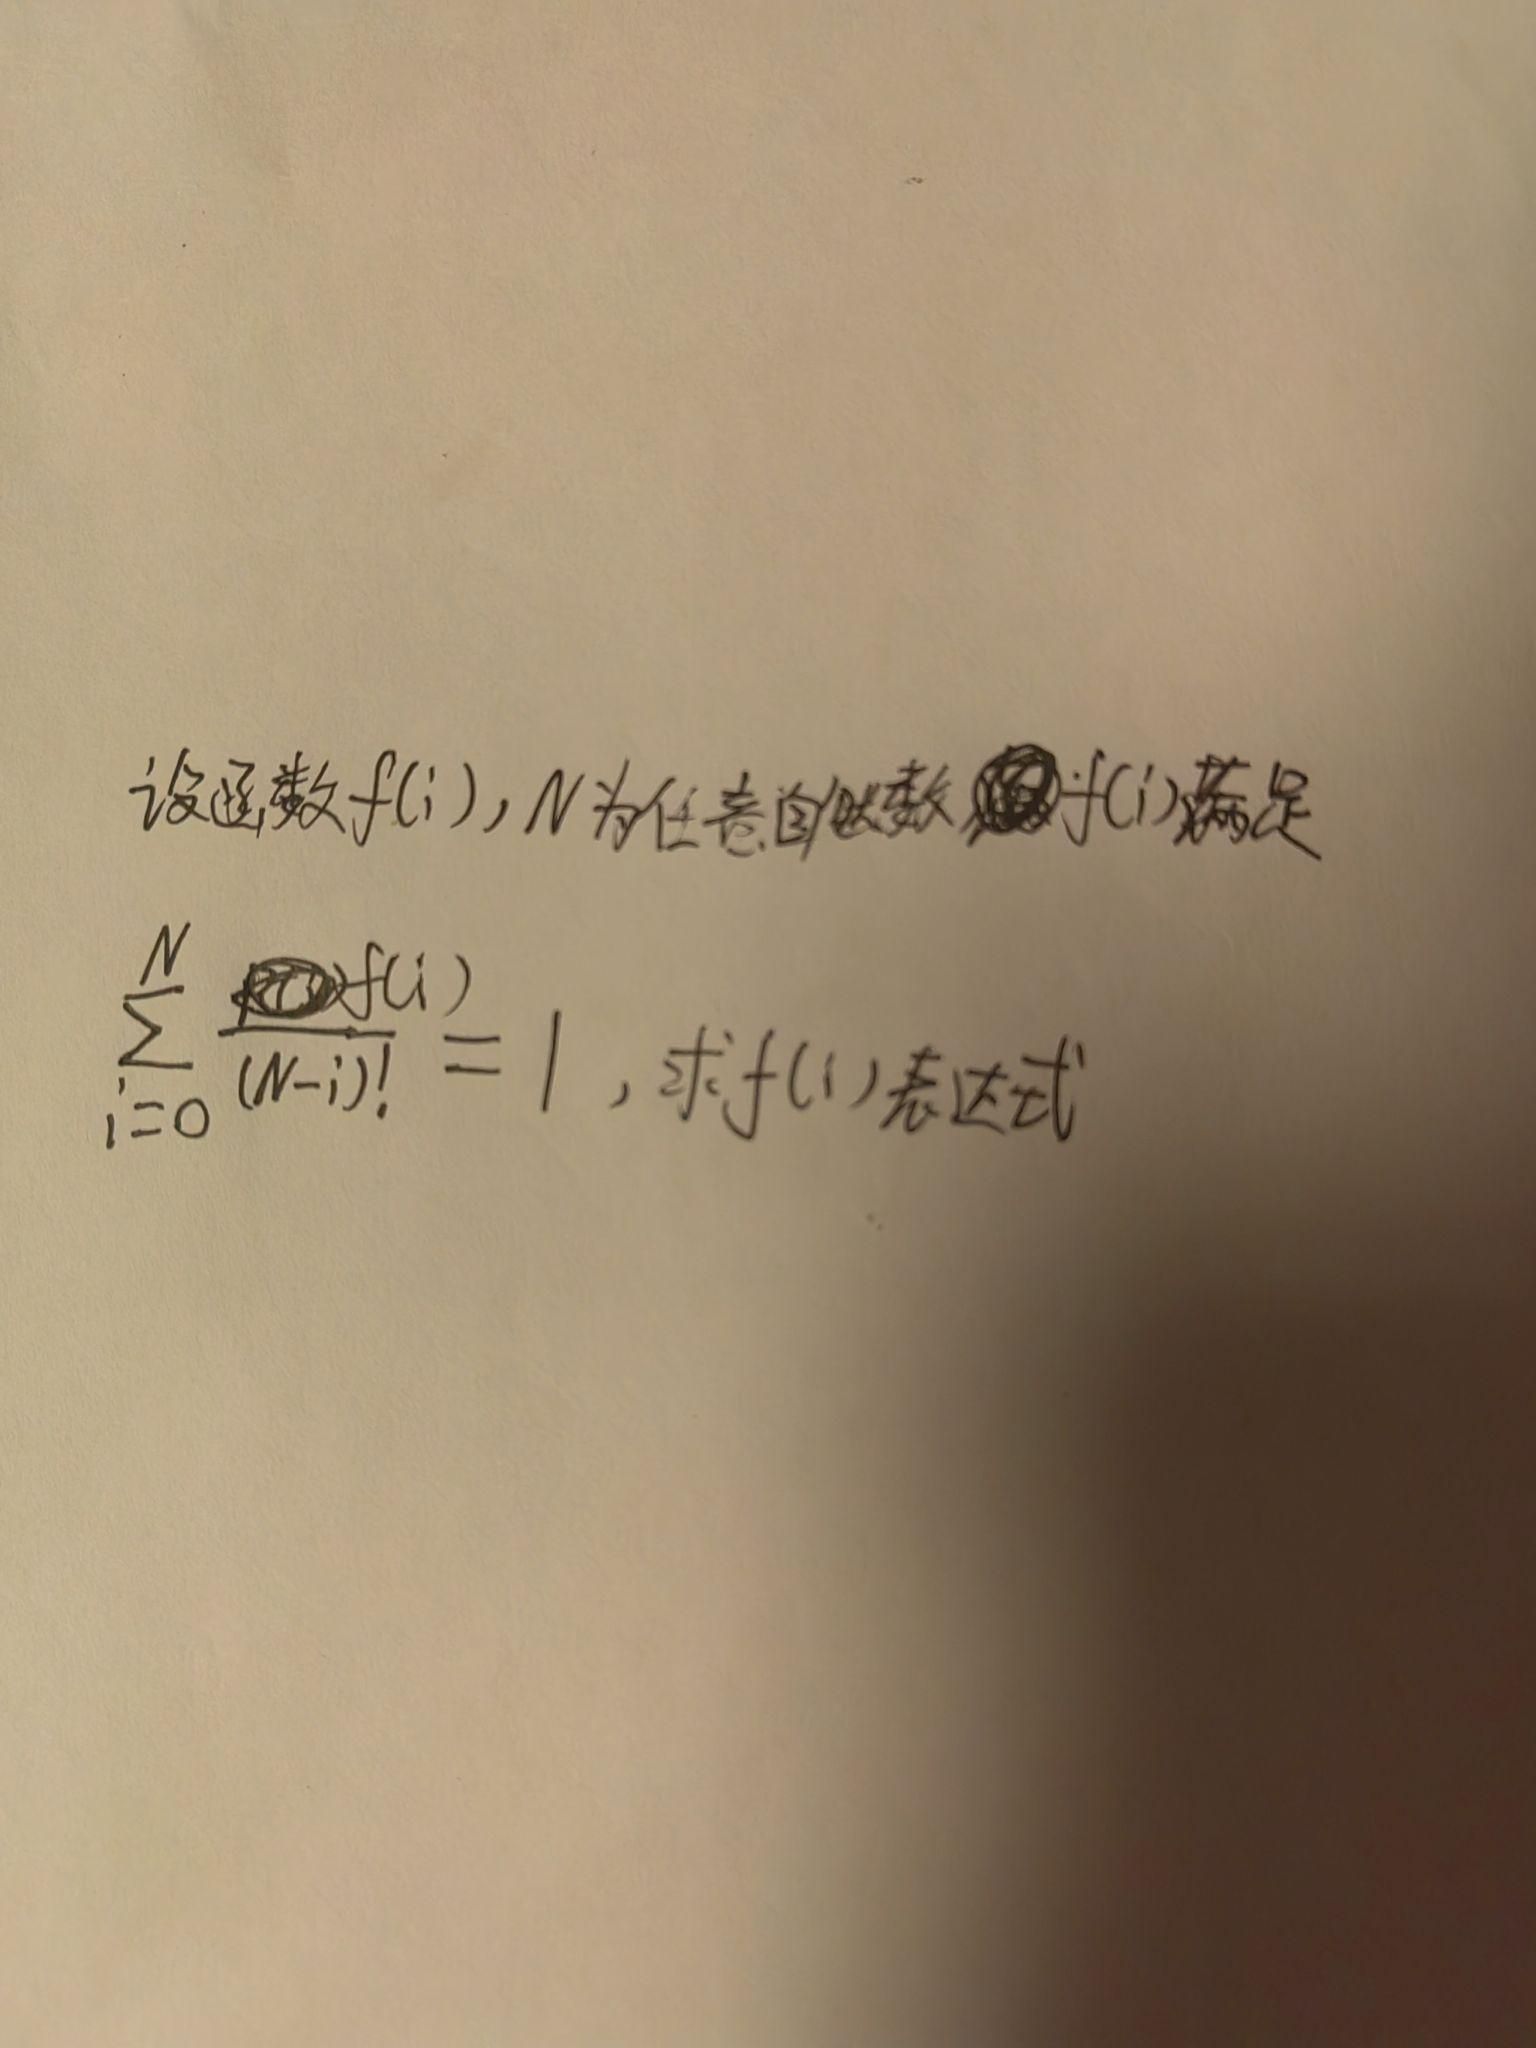 设函数f(i),N为任意自然数 f(i)满足
\sum_{i=0}^{N} \frac{f(i)}{(N-i)!} = 1,求f(i)表达式